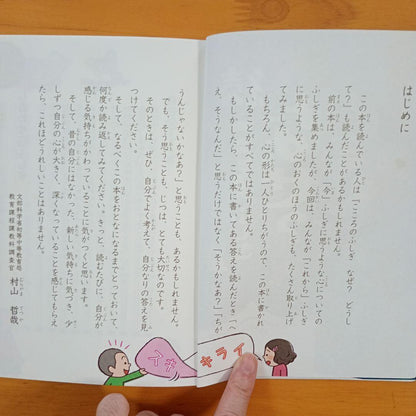 はじめに
この本を読んでいる人は「こころのふしぎ なぜ？ どうし
て？」も読んだことがあるかもしれません。
前の本は、みんなが「今」ふしぎに思うような心についての
ふしぎを集めましたが、今回は、みんなが「これから」ふしぎ
に思うような、心のおくのほうのふしぎも、たくさん取り上げ
てみました。
もちろん、心の形は一人ひとりちがうので、この本に書かれ
ていることがすべてではありません。
もしかしたら、この本に書いてある答えを読んだとき「へ
え、そうなんだ」と思うだけではなく「そうかなあ？」「ちが
うんじゃないかなあ？」と思うことも、あるかもしれません。
でも、そう思うことも、じつは、とても大切なのです。
そのときは、ぜひ、自分でよく考えて、自分なりの答えを見
つけてください。
そして、なるべくこの本をおとなになるまでとっておいて、
何度か読み返してみてください。きっと、読むたびに、自分が
感じる気持ちがかわっていることに気がつくと思います。
そして、昔の自分にはなかった、新しい気持ちに気づき、少
しずつ自分の心が大きく、深くなっていることを感じてもらえ
たら、これほどうれしいことはありません。
文部科学省初等中等教育局
教育課程課教科調査官 村山 哲哉
キライ
スキ